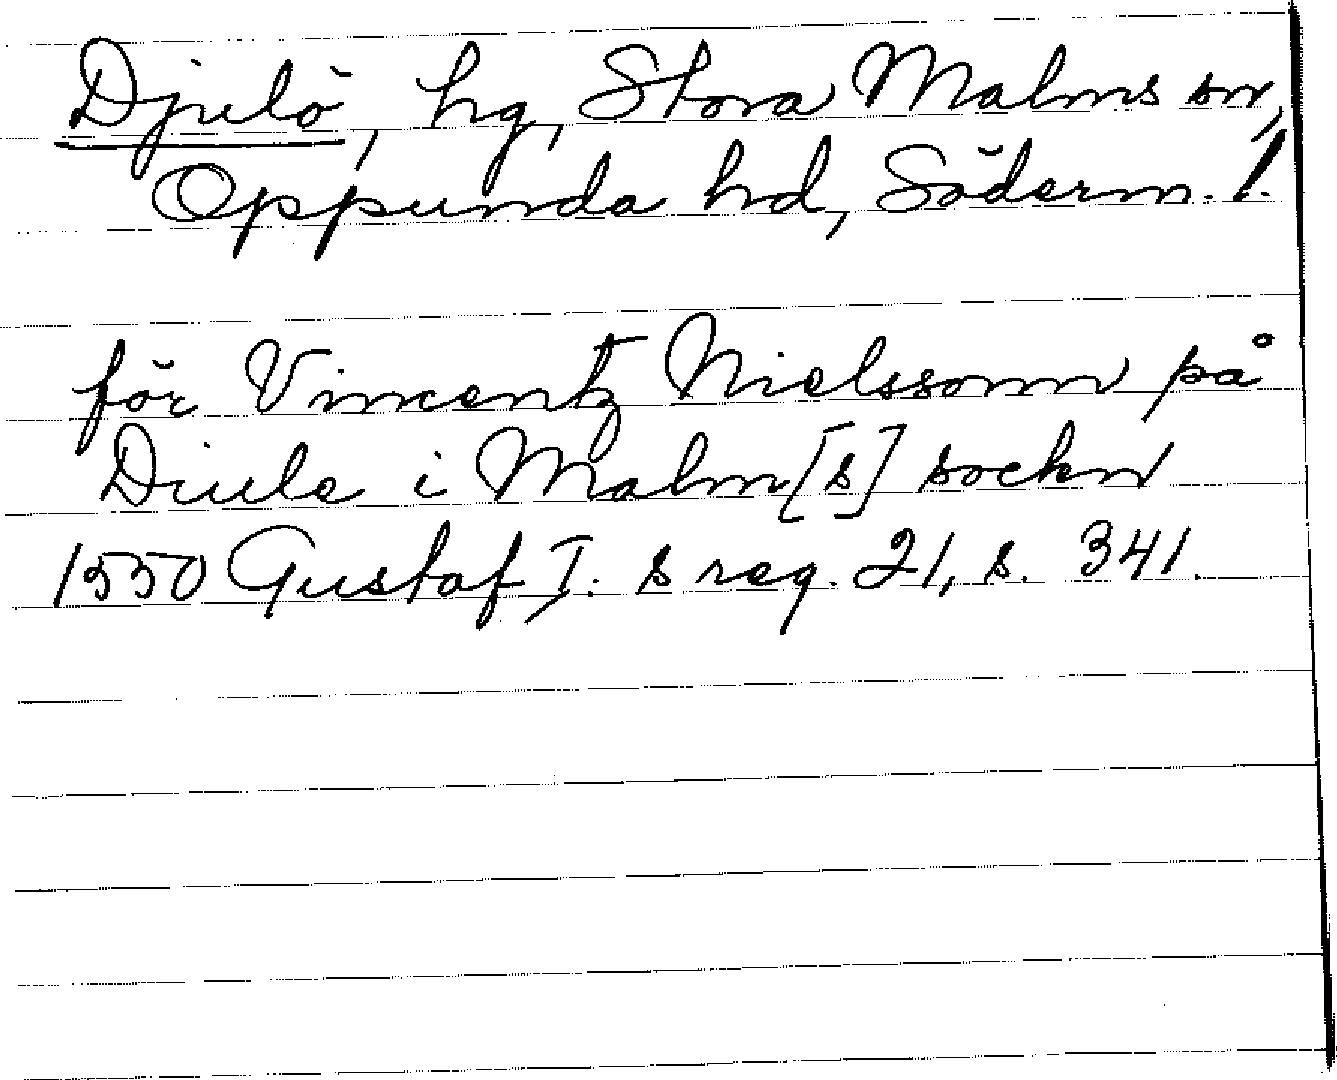 Djulö, hg, Stora Malms sn,
Oppunda hd, Söderm. l.
för Vincentz Nielssonn på
Diule i Malm[s] sockn
1550 Gustaf I:s reg. 21, s. 341.